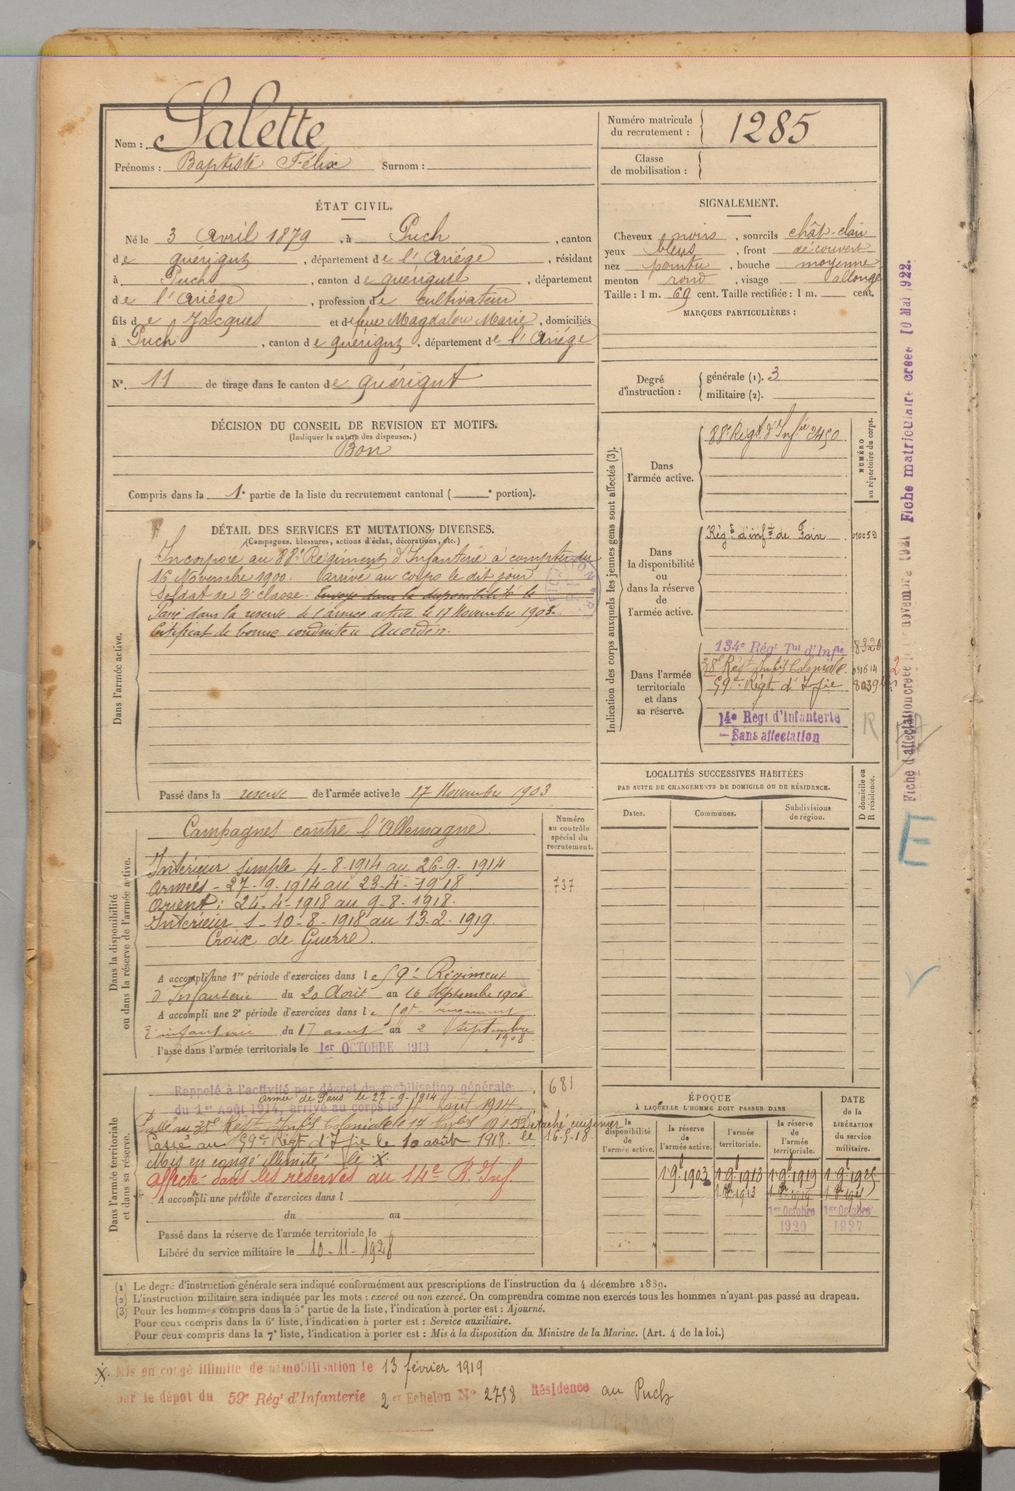 Nom : Salette
Prénoms : Baptiste Félix Surnom :
Numéro matricule du recrutement : 1285
Classe de mobilisation :
ÉTAT CIVIL.
Né le 3 Avril 1879, à Puch, canton
de quérigut, département de l'Ariége, résidant
à Puch, canton de quérigut, département
de l'Ariége, profession de Cultivateur
fils de Jacques et de feue Magdalou Marie, domiciliés
à Puch, canton de quérigut, département de l'Ariége
N°. 11 de tirage dans le canton de quérigut
DÉCISION DU CONSEIL DE REVISION ET MOTIFS.
(Indiquer la nature des dispenses.)
Bon
Compris dans la 1e partie de la liste du recrutement cantonal ( e portion).
SIGNALEMENT.
Cheveux noirs, sourcils chât-clair
yeux bleus, front découvert
nez pointu, bouche moyenne
menton rond, visage allongé
Taille : 1 m. 69 cent. Taille rectifiée : 1 m. cent.
MARQUES PARTICULIÈRES :
Degré d'instruction :
générale (1). 3
militaire (2).
DÉTAIL DES SERVICES ET MUTATIONS DIVERSES.
(Campagnes, blessures, actions d'éclat, décorations, etc.)
Dans l'armée active.
Incorporé au 88e Régiment d'Infanterie à compter du
16 Novembre 1900. Arrivé au corps le dit jour
Soldat de 2e classe. Envoyé dans la disponibilité le
Passé dans la réserve de l'armée active le 17 Novembre 1903.
Certificat de bonne conduite Accordé.
Passé dans la reserve de l'armée active le 17 Novembre 1903
Indication des corps auxquels les jeunes gens sont affectés (3).
NUMÉRO au répertoire du corps.
Dans l'armée active.
88e Régt d'Infie 2450
Dans la disponibilité ou dans la réserve de l'armée active.
Régt d'Infie de Foix
Dans l'armée territoriale et dans sa réserve.
134e Régt Tal d'Infie
38e Régt Infie Coloniale
59e Régt d'Infie
14e Regt d'Infanterie
Sans affectation
R
Dans la disponibilité ou dans la réserve de l'armée active.
Numéro au contrôle spécial du recrutement.
737
Campagnes contre l'Allemagne.
Intérieur simple 4-8-1914 au 26-9-1914
Armées - 27-9-1914 au 23-4-1918
Orient : 24-4-1918 au 9-8-1918.
Intérieur S - 10-8-1918 au 13-2-1919.
Croix de Guerre.
A accompli une 1re période d'exercices dans le 59e Régiment
d'Infanterie du 20 Août au 16 Septembre 1906
A accompli une 2e période d'exercices dans le 59e régiment
d'infanterie du 17 août au 2 Septembre 1908
Passé dans l'armée territoriale le 1er OCTOBRE 1913
LOCALITÉS SUCCESSIVES HABITÉES
PAR SUITE DE CHANGEMENTS DE DOMICILE OU DE RÉSIDENCE.
Dates. Communes. Subdivisions de région. D domicile ou R résidence.
Dans l'armée territoriale et dans sa réserve.
681
Rappelé à l'activité par décret de mobilisation générale
Armée de Paris le 27-9-1914
du 1er Août 1914, arrivé au corps le Août 1914.
Passé au 59e Régt d'Ifie le 10 août 1918.
Détaché cuisinier le 16-5-18
Mis en congé illimité le X
Affecté dans les réserves au 14e R. Inf.
A accompli une période d'exercices dans l
du au
Passé dans la réserve de l'armée territoriale le
Libéré du service militaire le 10-11-1928
ÉPOQUE À LAQUELLE L'HOMME DOIT PASSER DANS
la disponibilité de l'armée active.
la réserve de l'armée active.
l'armée territoriale.
la réserve de l'armée territoriale.
DATE de la LIBÉRATION du service militaire.
1er Octobre 1920
1er Octobre 1927
(1) Le degré d'instruction générale sera indiqué conformément aux prescriptions de l'instruction du 4 décembre 1889.
(2) L'instruction militaire sera indiquée par les mots : exercé ou non exercé. On comprendra comme non exercés tous les hommes n'ayant pas passé au drapeau.
(3) Pour les hommes compris dans la 5e partie de la liste, l'indication à porter est : Ajourné.
Pour ceux compris dans la 6e liste, l'indication à porter est : Service auxiliaire.
Pour ceux compris dans la 7e liste, l'indication à porter est : Mis à la disposition du Ministre de la Marine. (Art. 4 de la loi.)
X Mis en congé illimité de démobilisation le 13 février 1919
par le dépôt du 59e Régt d'Infanterie 2e Echelon N° 2758 Résidence au Puch
Fiche matriculaire créée 10 Mai 1922.
E